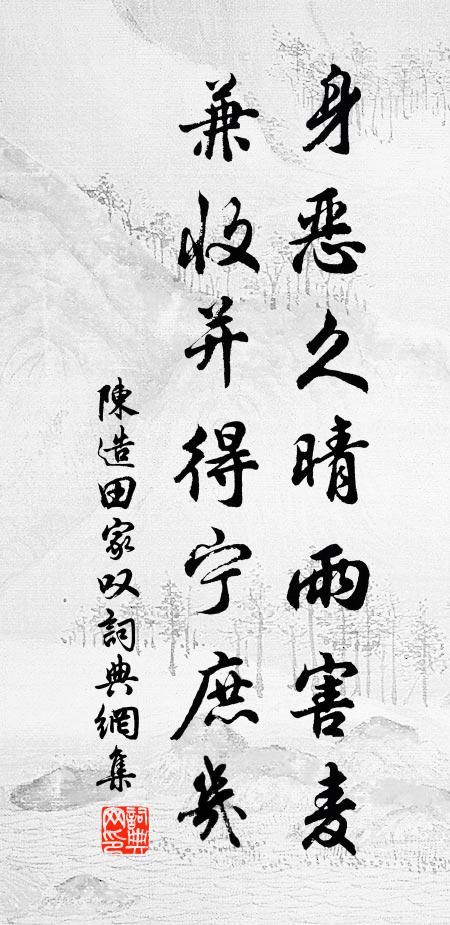 身恶久晴雨害麦
兼收并得宁庶几
陳造田家叹詞典網集
詞典
网印